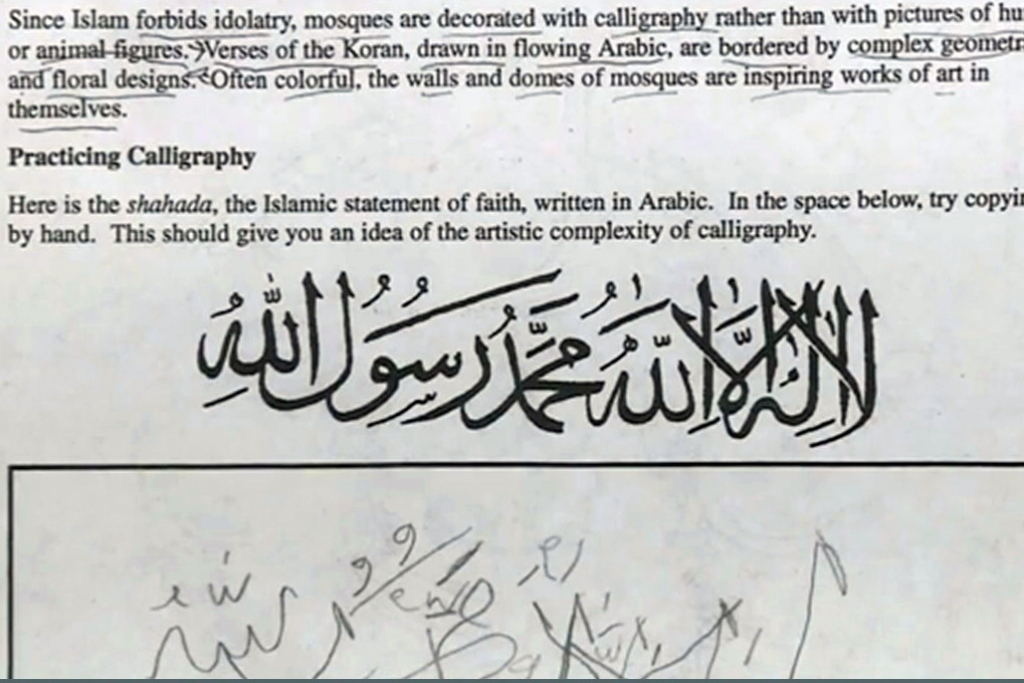 Since Islam forbids idolatry, mosques are decorated with calligraphy rather than with pictures of hu
or animal figures. Verses of the Koran, drawn in flowing Arabic, are bordered by complex geometr
and floral designs. Often colorful, the walls and domes of mosques are inspiring works of art in
themselves.
Practicing Calligraphy
Here is the shahada, the Islamic statement of faith, written in Arabic. In the space below, try copyin
by hand. This should give you an idea of the artistic complexity of calligraphy.
لا إله إلا الله محمد رسول الله